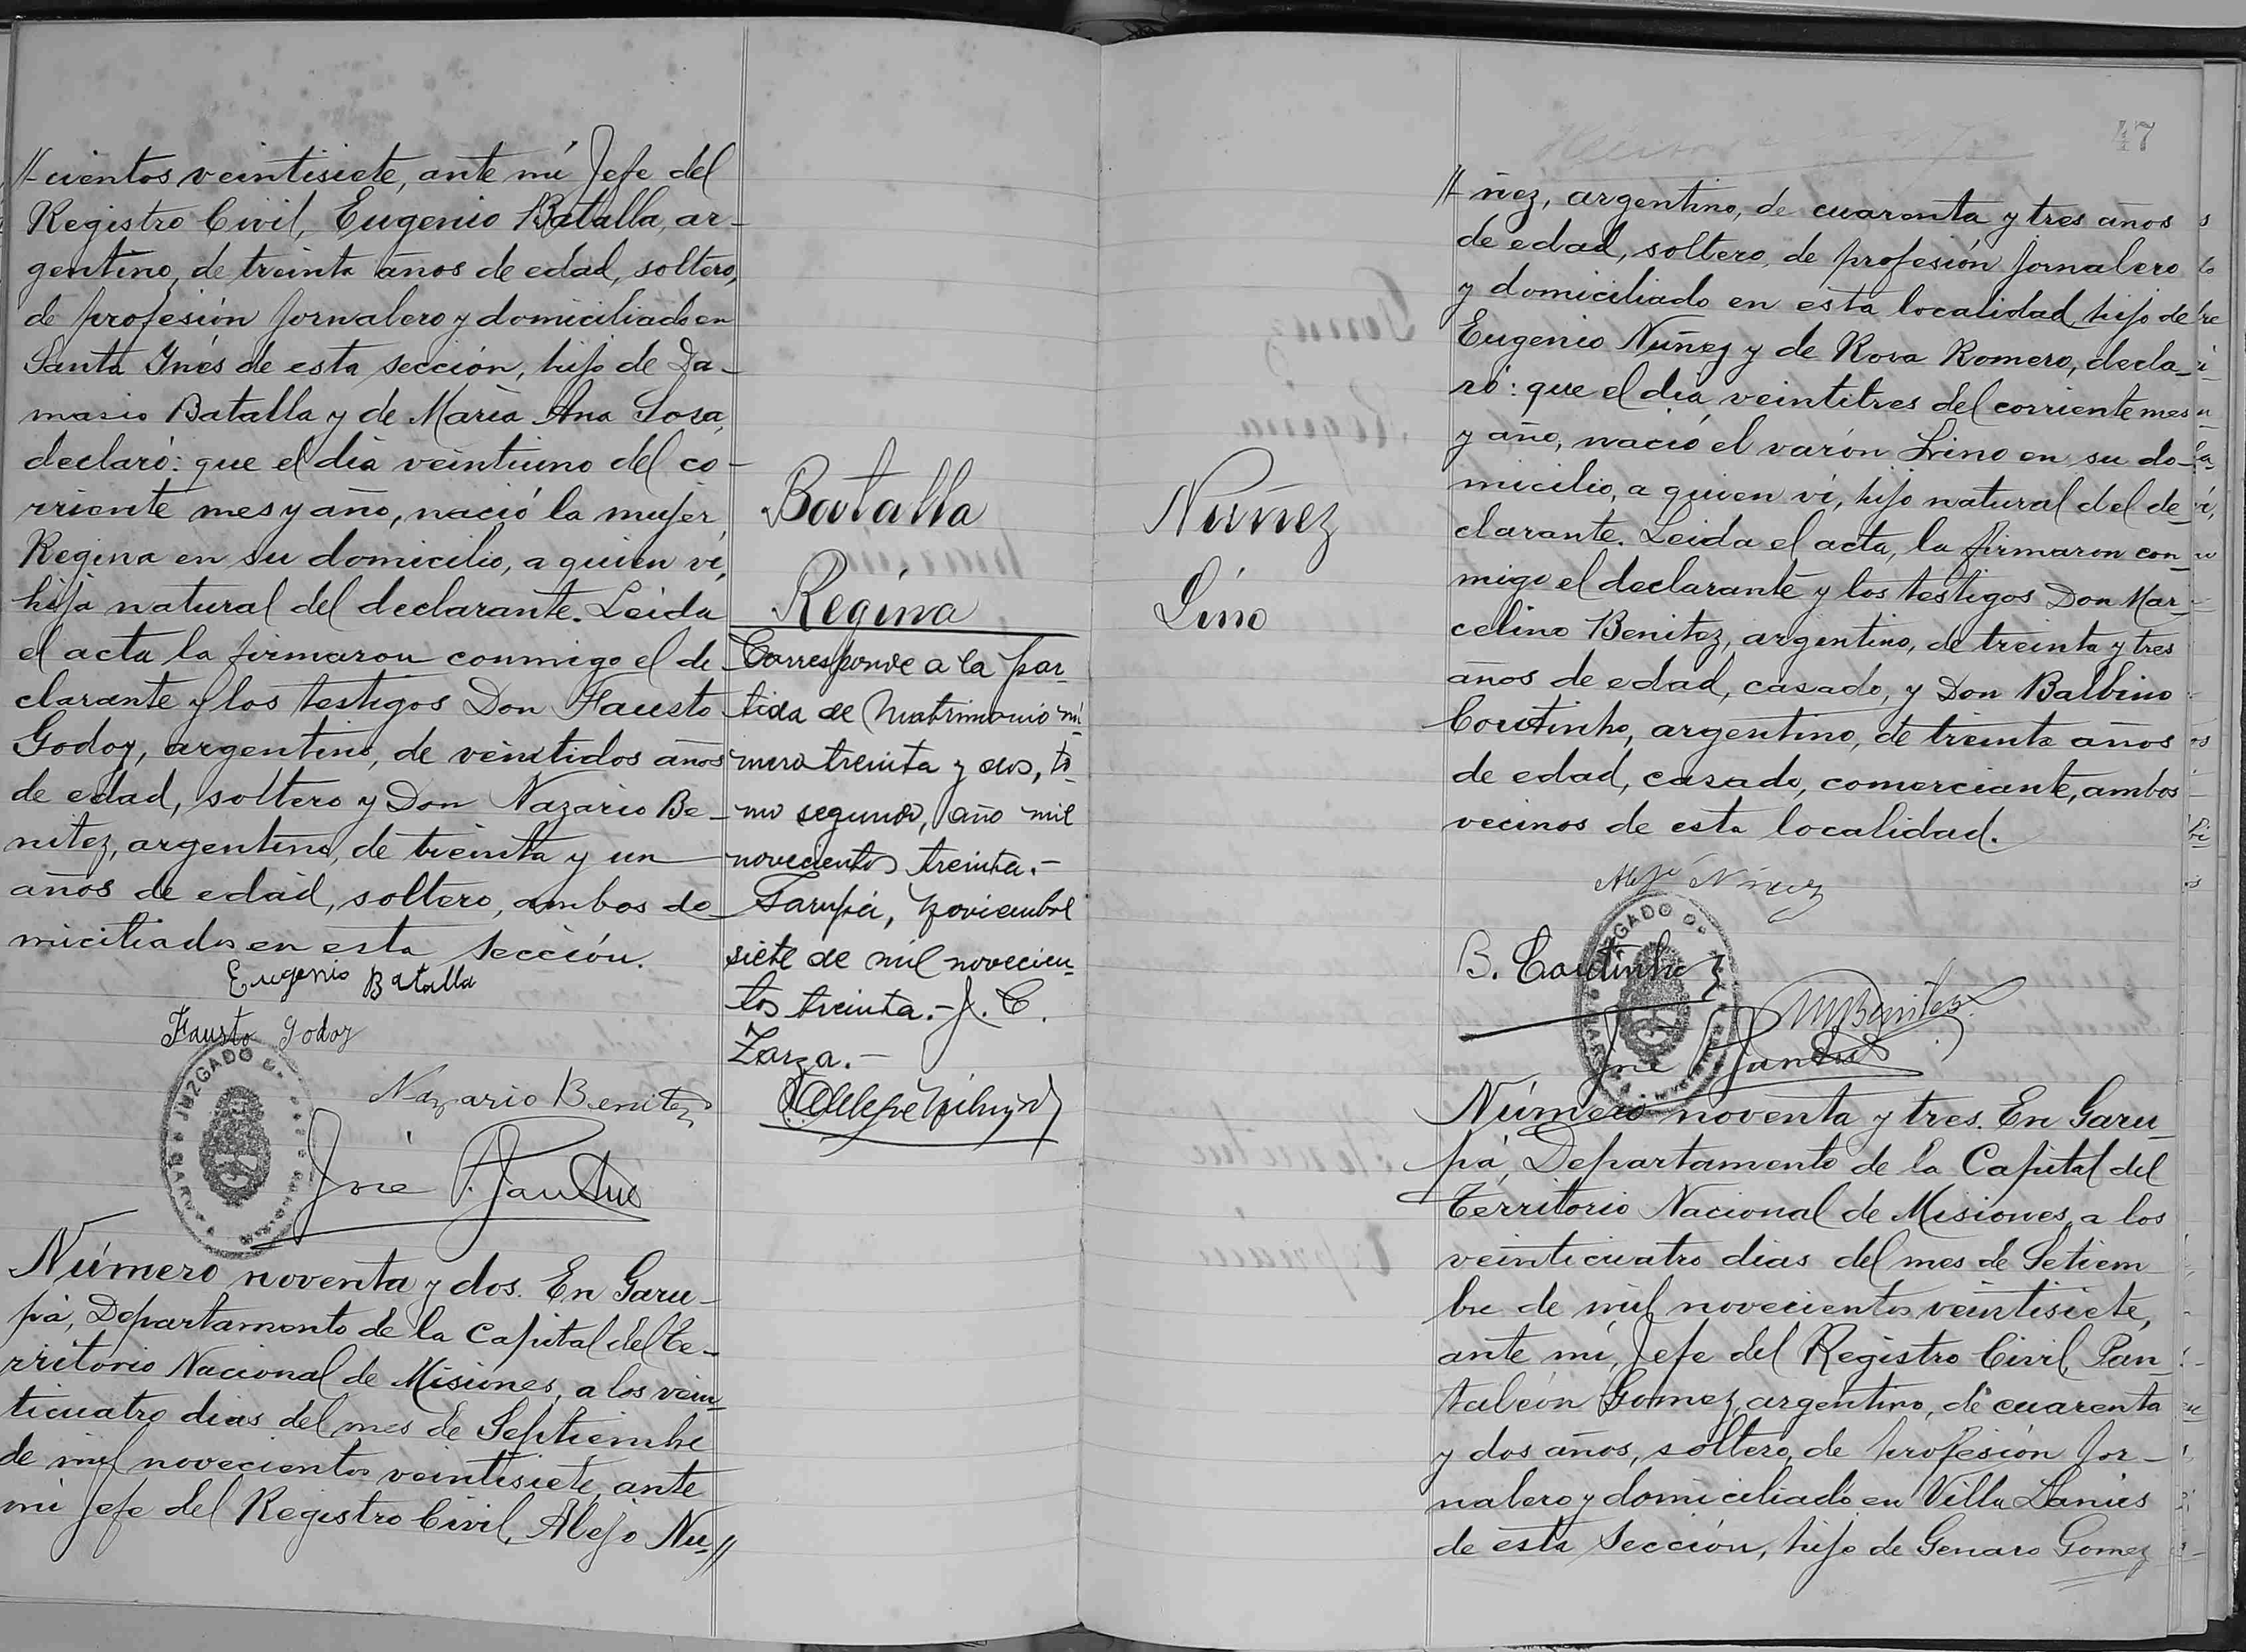 //-cientos veintisiete, ante mi Jefe del
Registro Civil, Eugenio Batalla, ar-
gentino, de treinta años de edad, soltero,
de profesión jornalero y domiciliado en
Santa Ynés de esta sección, hijo de Da-
masio Batalla y de María Ana Sosa,
declaró: que el día veintiuno del co-
rriente mes y año, nació la mujer
Regina en su domicilio, a quien ví,
hija natural del declarante. Leida
el acta la firmaron conmigo el de
clarante y los testigos Don Fausto
Godoy, argentino, de veintidos años
de edad, soltero y Don Nazario Be-
nitez, argentino, de treinta y un
años de edad, soltero, ambos do-
miciliados en esta sección.
Eugenio Batalla
Fausto Godoy
Nazario Benitez
JUZGADO D
José P.
Número noventa y dos. En Garu-
pá, Departamento de la Capital del Te-
rritorio Nacional de Misiones, a los vein-
ticuatro dias del mes de Septiembre
de mil novecientos veintisiete, ante
mi Jefe del Registro Civil, Alejo Nu-//
Batalla
Regina
Corresponde a la par-
tida de Matrimonio nú-
mero treinta y dos, to-
mo segundo, año mil
novecientos treinta.-
Garupá, Noviembre
siete de mil novecien-
tos treinta.- J. C.
Zarza.-
47
Nuñez
Lino
//-ñez, argentino, de cuarenta y tres años
de edad, soltero, de profesión jornalero
y domiciliado en esta localidad, hijo de
Eugenio Nuñez y de Rosa Romero, decla-
ró: que el día veintitres del corriente mes
y año, nació el varón Lino en su do-
micilio, a quien ví, hijo natural del de-
clarante. Leida el acta, la firmaron con-
migo el declarante y los testigos Don Mar-
celino Benitez, argentino, de treinta y tres
años de edad, casado, y Don Balbino
Coutinho, argentino, de treinta años
de edad, casado, comerciante, ambos
vecinos de esta localidad.
Alejo Nuñez
B. Coutinho
JUZGADO D
M Benitez
José P.
Número noventa y tres. En Garu-
pá, Departamento de la Capital del
Territorio Nacional de Misiones, a los
veinticuatro dias del mes de Setiem
bre de mil novecientos veintisiete,
ante mi, Jefe del Registro Civil, Pan-
taleón Gomez, argentino, de cuarenta
y dos años, soltero, de profesión jor-
nalero y domiciliado en Villa Lanús
de esta sección, hijo de Genaro Gomez